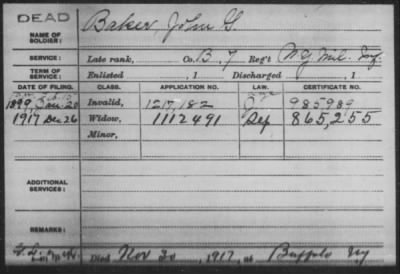 DEAD
NAME OF SOLDIER: Baker John G.
SERVICE: Late rank, Co. B, 7 Reg't Inf.
TERM OF SERVICE: Enlisted , 1 Discharged , 1
DATE OF FILING. CLASS. APPLICATION NO. LAW. CERTIFICATE NO.
1899, Jan. 20 Invalid, 1217,182 985989
1917 Dec 26 Widow, 1112491 865,255
Minor,
ADDITIONAL SERVICES:
REMARKS:
Died Nov 30, 1917, at Buffalo Ny